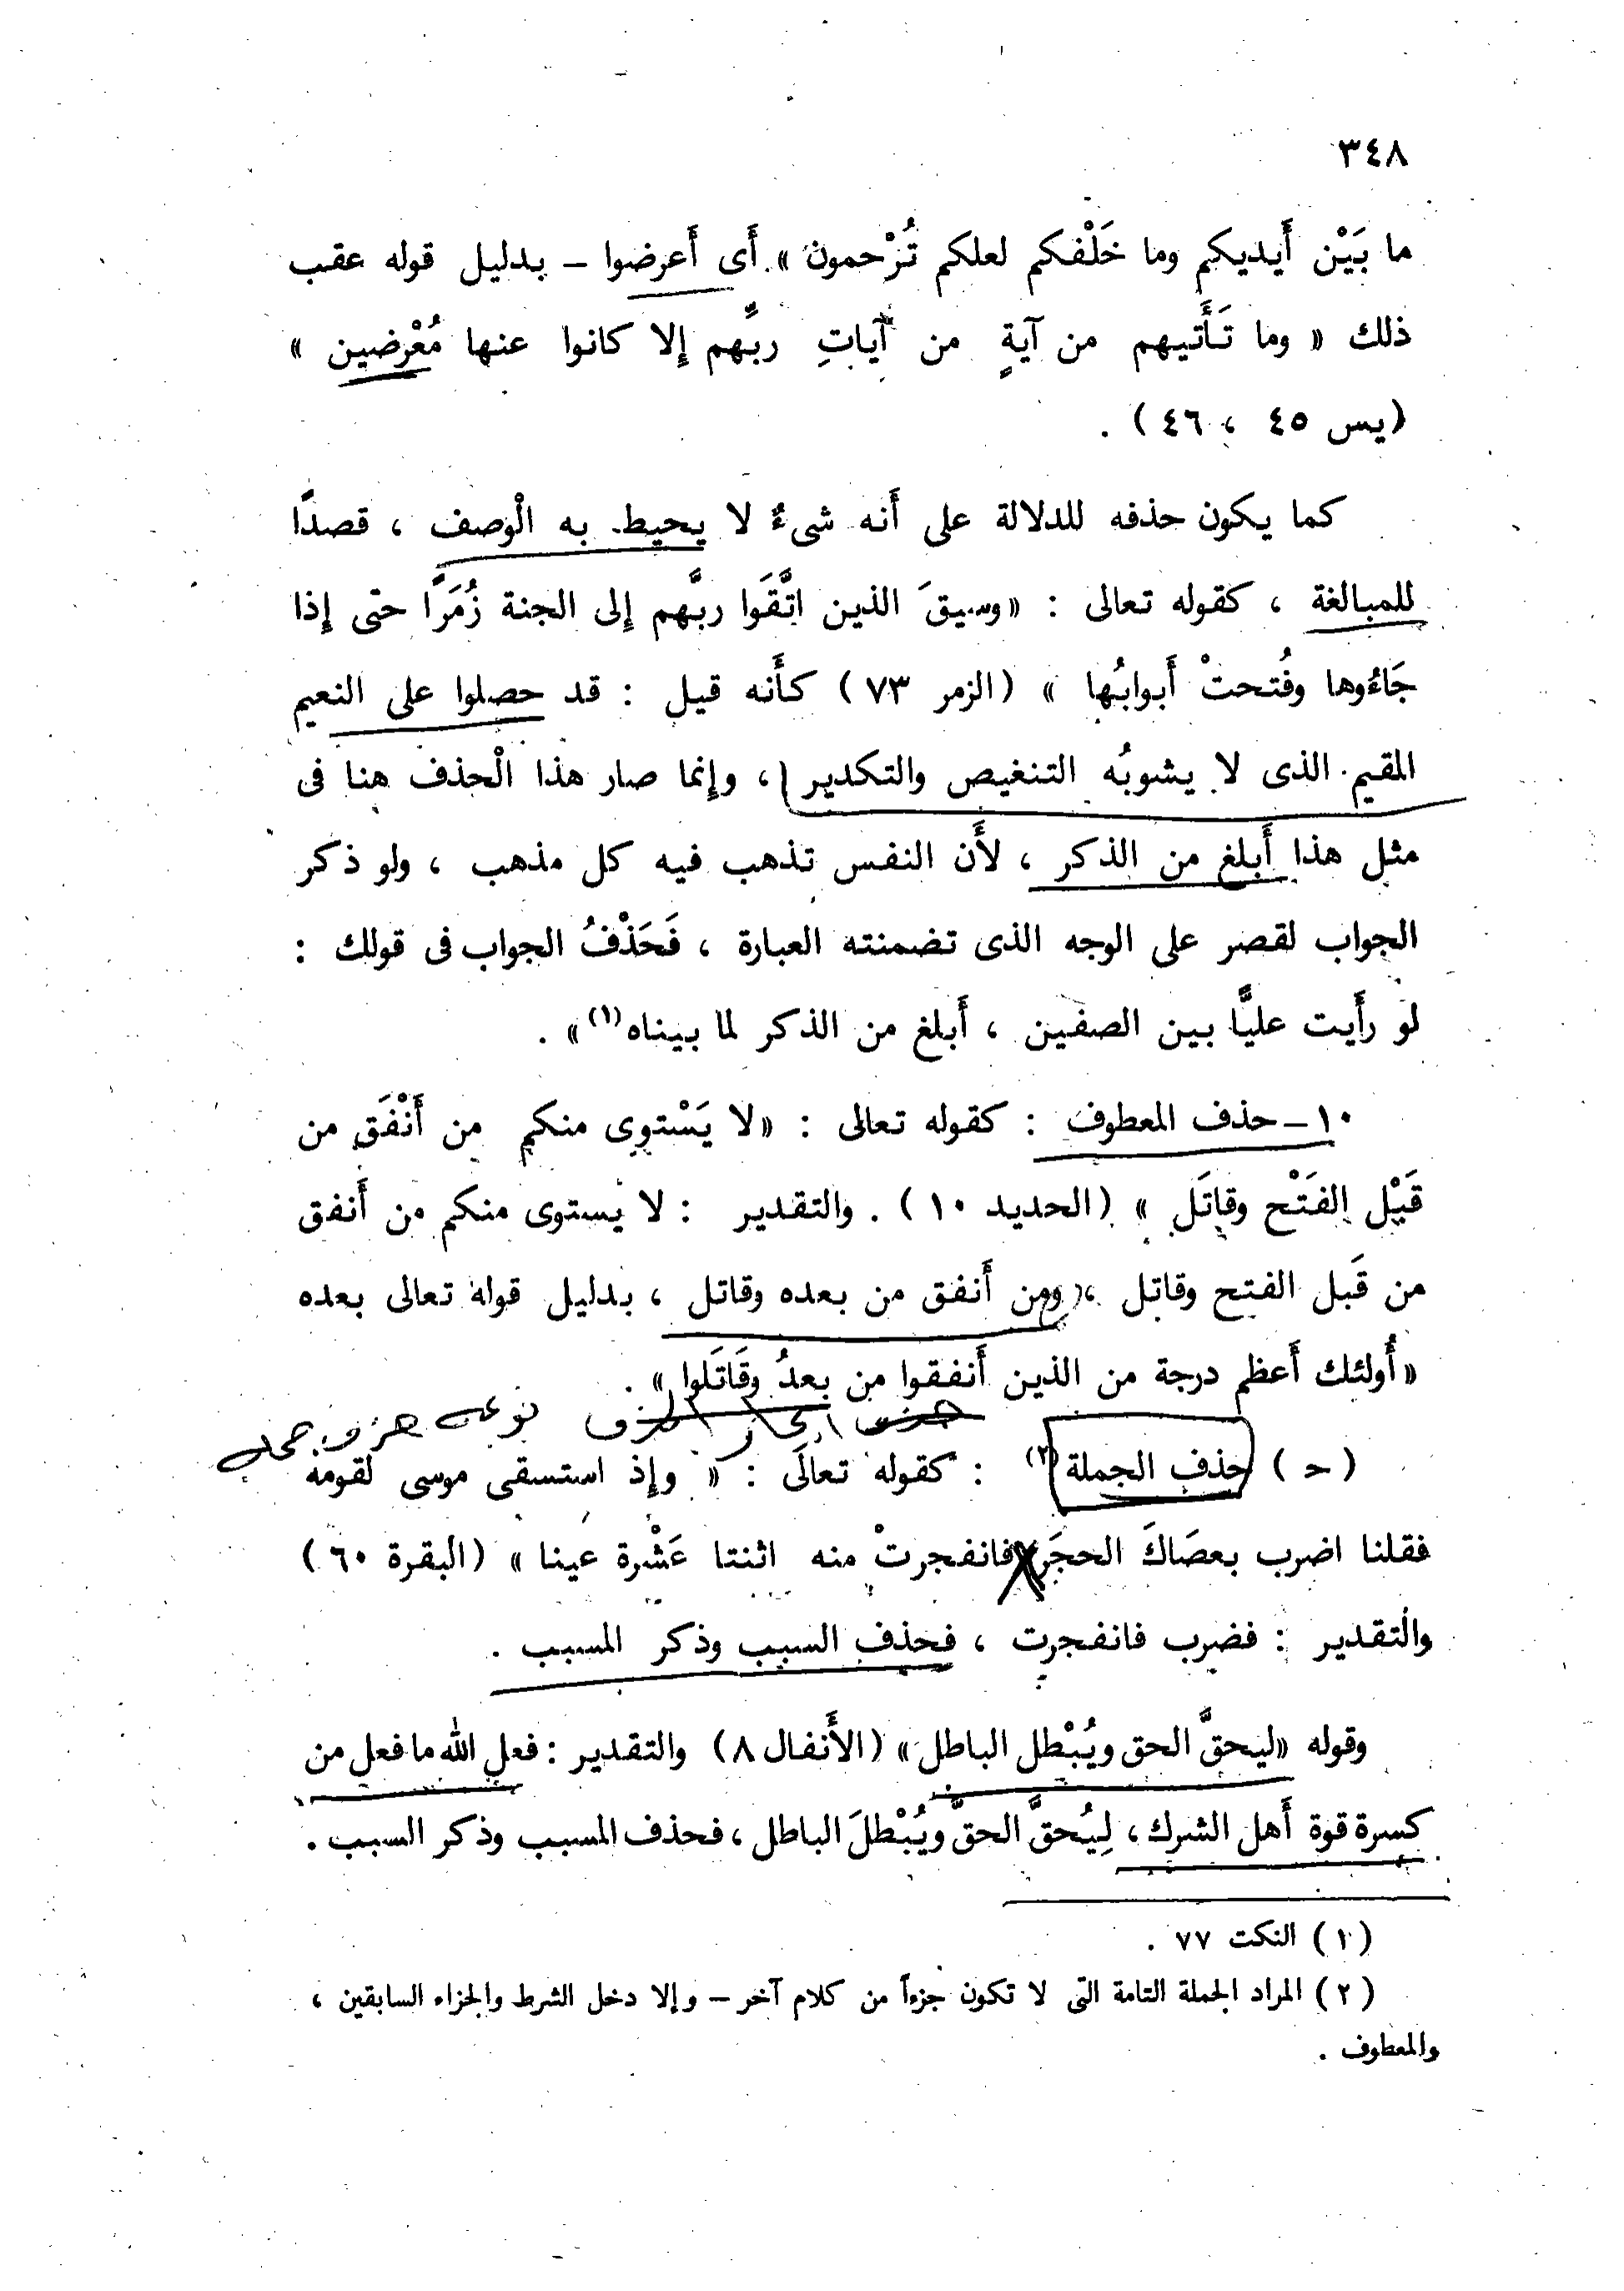 ٣٤٨
ما بَيْن أَيديكم وما خَلْفكم لعلكم تُرْحمون » أَى أَعرضوا – بدليل قوله عقب
ذلك « وما تَأْتيهم من آيةٍ من آياتِ ربِّهم إلا كانوا عنها مُعْرضين »
(يس ٤٥ ، ٤٦) .
كما يكون حذفه للدلالة على أَنه شىءٌ لا يحيط به الْوصف ، قصدًا
للمبالغة ، كقوله تعالى : «وسيقَ الذين اتَّقَوا ربَّهم إلى الجنة زُمَرًا حتى إذا
جَاءُوها وفُتحتْ أَبوابُها » (الزمر ٧٣) كأَنه قيل : قد حصلوا على النعيم
المقيم الذى لا يشوبُه التنغيص والتكدير ، وإنما صار هذا الْحذف هنا فى
مثل هذا أَبلغ من الذكر ، لأَن النفس تذهب فيه كل مذهب ، ولو ذكر
الجواب لقصر على الوجه الذى تضمنته العبارة ، فَحَذْفُ الجواب فى قولك :
لو رأَيت عليًّا بين الصفين ، أَبلغ من الذكر لما بيناه(١)» .
١٠ – حذف المعطوف : كقوله تعالى : «لا يَسْتوِى منكم من أَنْفَق من
قَبْل الفَتْح وقاتَل » (الحديد ١٠) . والتقدير : لا يستوى منكم من أَنفق
من قَبل الفتح وقاتل ، ومن أَنفق من بعده وقاتل ، بدليل قوله تعالى بعده
«أُولئك أَعظم درجة من الذين أَنفقوا من بعدُ وقَاتَلوا » .
(ح) حذف الجملة(٢) : كقوله تعالَى : « وإذ استسقى موسى لقومه
فقلنا اضرب بعصَاكَ الحجَر فانفجرتْ منه اثنتا عَشْرة عينا » (البقرة ٦٠)
والتقدير : فضرب فانفجرت ، فحذف السبب وذكر المسبب .
وقوله «ليحقَّ الحق ويُبْطل الباطل» (الأَنفال ٨) والتقدير : فعل الله ما فعل من
كسرة قوة أَهل الشرك ، لِيُحقَّ الحقَّ ويُبْطلَ الباطل ، فحذف المسبب وذكر السبب .
(١) النكت ٧٧ .
(٢) المراد الجملة التامة التى لا تكون جزءاً من كلام آخر – وإلا دخل الشرط والجزاء السابقين ،
والمعطوف .